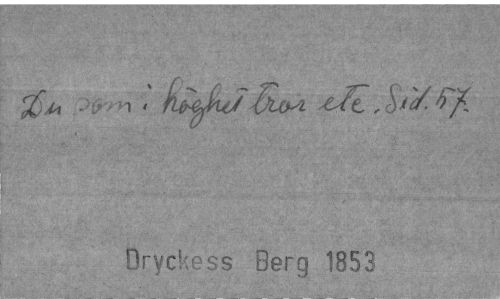 Du som i höghet tror etc. Sid. 57.
Dryckess Berg 1853